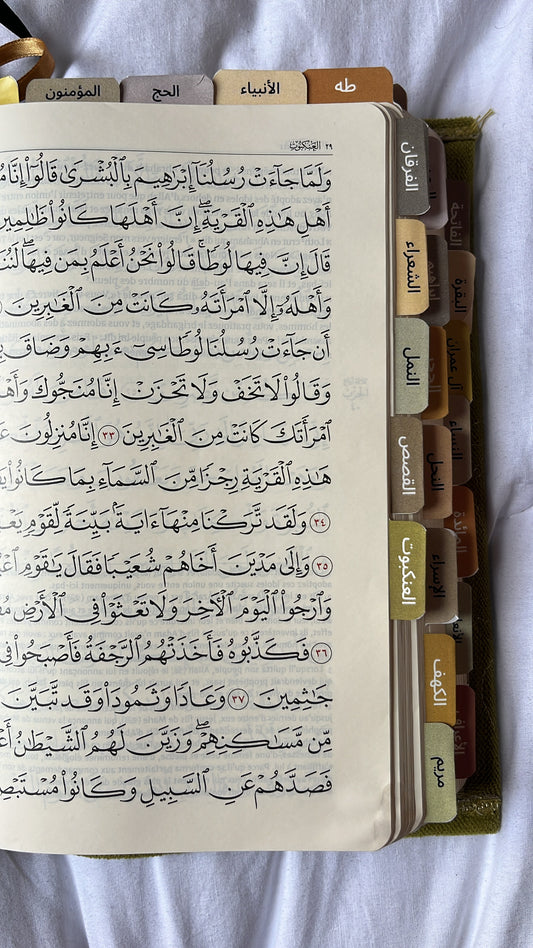 طه الأنبياء الحج المؤمنون
٢٩ العنكبوت
وَلَمَّا جَآءَتْ رُسُلُنَآ إِبْرَٰهِيمَ بِٱلْبُشْرَىٰ قَالُوٓا۟ إِنَّا
أَهْلِ هَٰذِهِ ٱلْقَرْيَةِ ۖ إِنَّ أَهْلَهَا كَانُوا۟ ظَٰلِمِينَ
قَالَ إِنَّ فِيهَا لُوطًا ۚ قَالُوا۟ نَحْنُ أَعْلَمُ بِمَن فِيهَا ۖ
وَأَهْلَهُۥٓ إِلَّا ٱمْرَأَتَهُۥ كَانَتْ مِنَ ٱلْغَٰبِرِينَ
أَن جَآءَتْ رُسُلُنَا لُوطًا سِىٓءَ بِهِمْ وَضَاقَ
وَقَالُوا۟ لَا تَخَفْ وَلَا تَحْزَنْ ۖ إِنَّا مُنَجُّوكَ
ٱمْرَأَتَكَ كَانَتْ مِنَ ٱلْغَٰبِرِينَ ٣٣ إِنَّا مُنزِلُونَ
هَٰذِهِ ٱلْقَرْيَةِ رِجْزًا مِّنَ ٱلسَّمَآءِ بِمَا كَانُوا۟
٣٤ وَلَقَد تَّرَكْنَا مِنْهَآ ءَايَةًۢ بَيِّنَةً لِّقَوْمٍ
٣٥ وَإِلَىٰ مَدْيَنَ أَخَاهُمْ شُعَيْبًا فَقَالَ يَٰقَوْمِ
وَٱرْجُوا۟ ٱلْيَوْمَ ٱلْءَاخِرَ وَلَا تَعْثَوْا۟ فِى ٱلْأَرْضِ
٣٦ فَكَذَّبُوهُ فَأَخَذَتْهُمُ ٱلرَّجْفَةُ فَأَصْبَحُوا۟ فِى
جَٰثِمِينَ ٣٧ وَعَادًا وَثَمُودَا۟ وَقَد تَّبَيَّنَ
مِّن مَّسَٰكِنِهِمْ ۖ وَزَيَّنَ لَهُمُ ٱلشَّيْطَٰنُ
فَصَدَّهُمْ عَنِ ٱلسَّبِيلِ وَكَانُوا۟
الفرقان
الشعراء
النمل
القصص
العنكبوت
النحل
الإسراء
الكهف
مريم
الفاتحة
البقرة
آل عمران
النساء
المائدة